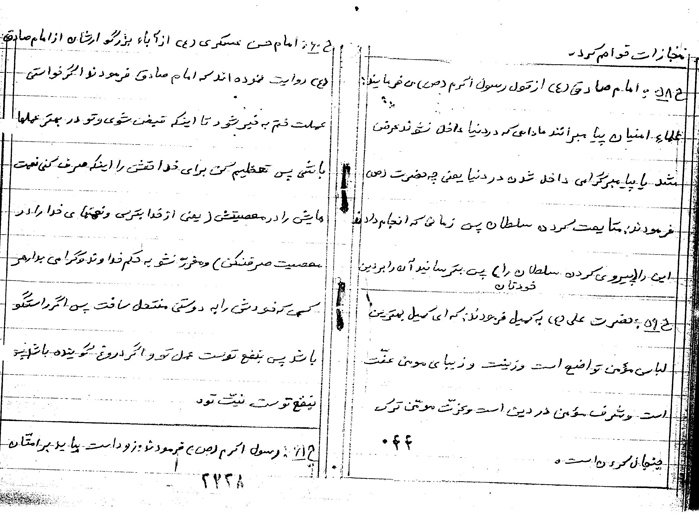 مجازات قواهم کرد ر
ح۵۸: امام صادق (ع) از قول رسول اکرم (ص) می فرمایند:
علماء امنیان پیامبرانند مادامی که در دنیا داخل نشوند عرض
شد یا پیامبر گرامی داخل شدن در دنیا یعنی چه حضرت (ص)
فرمودند: متابعت کردن سلطان پس زمانی که انجام دادند
این را (پیروی کردن سلطان را) پس بترسانید آن را بر دین
خودتان
ح۵۹: حضرت علی (ع) به کمیل فرمودند: که ای کمیل بهترین
لباس مؤمن تواضع است و زینت و زیبای مومن عفت
است و شرف مؤمن در دین است و عزت مومن ترک
کردن است.
۰۴۴
ح۶۰: امام حسن عسکری (ع) از آباء بزرگوارشان از امام صادق
(ع) روایت نموده اند که امام صادق فرمودند اگر خواستی
عملت ختم به خیر شود تا اینکه قبض شوی و تو در بهتر عملها
باشی پس تعظیم کن برای خدا حقش را اینکه صرف کنی نعمت
هایش را در معصیتش (یعنی از خدا بترسی و نعمتهای خدا را در
معصیت صرف نکن) و مغرور نشو به حکم خداوند و گرامی بدار هر
کسی که خودش را به دوستی منتحل ساخت پس اگر راستگو
باشد پس بنفع توست عمل تو و اگر دروغ گوینده باشد
بنفع توست نیت تو
ح۶۱: رسول اکرم (ص) فرمودند: زود است بیاید بر امتان
۲۷۲۸